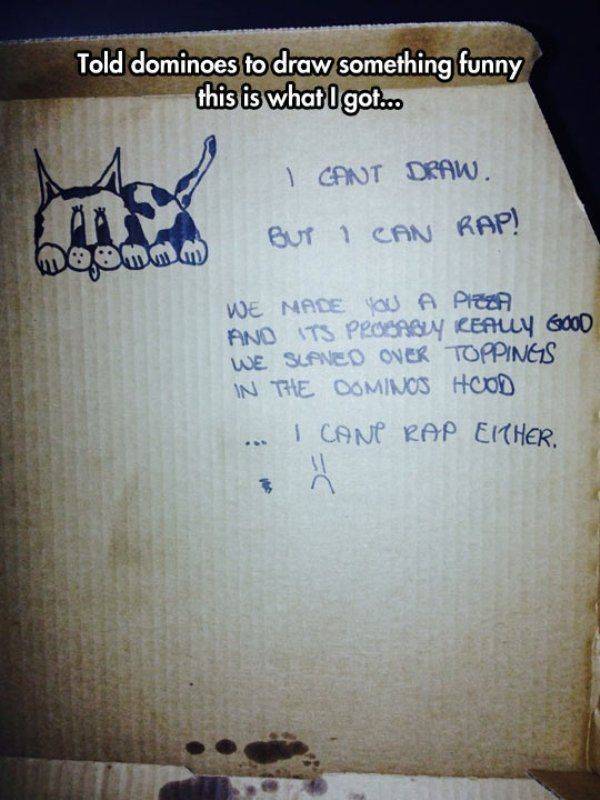 Told dominoes to draw something funny
this is what I got...
I CANT DRAW.
BUT I CAN RAP!
WE MADE YOU A PIZZA
AND ITS PROBABLY REALLY GOOD
WE SLAVED OVER TOPPINGS
IN THE DOMINOS HOOD
... I CANT RAP EITHER.